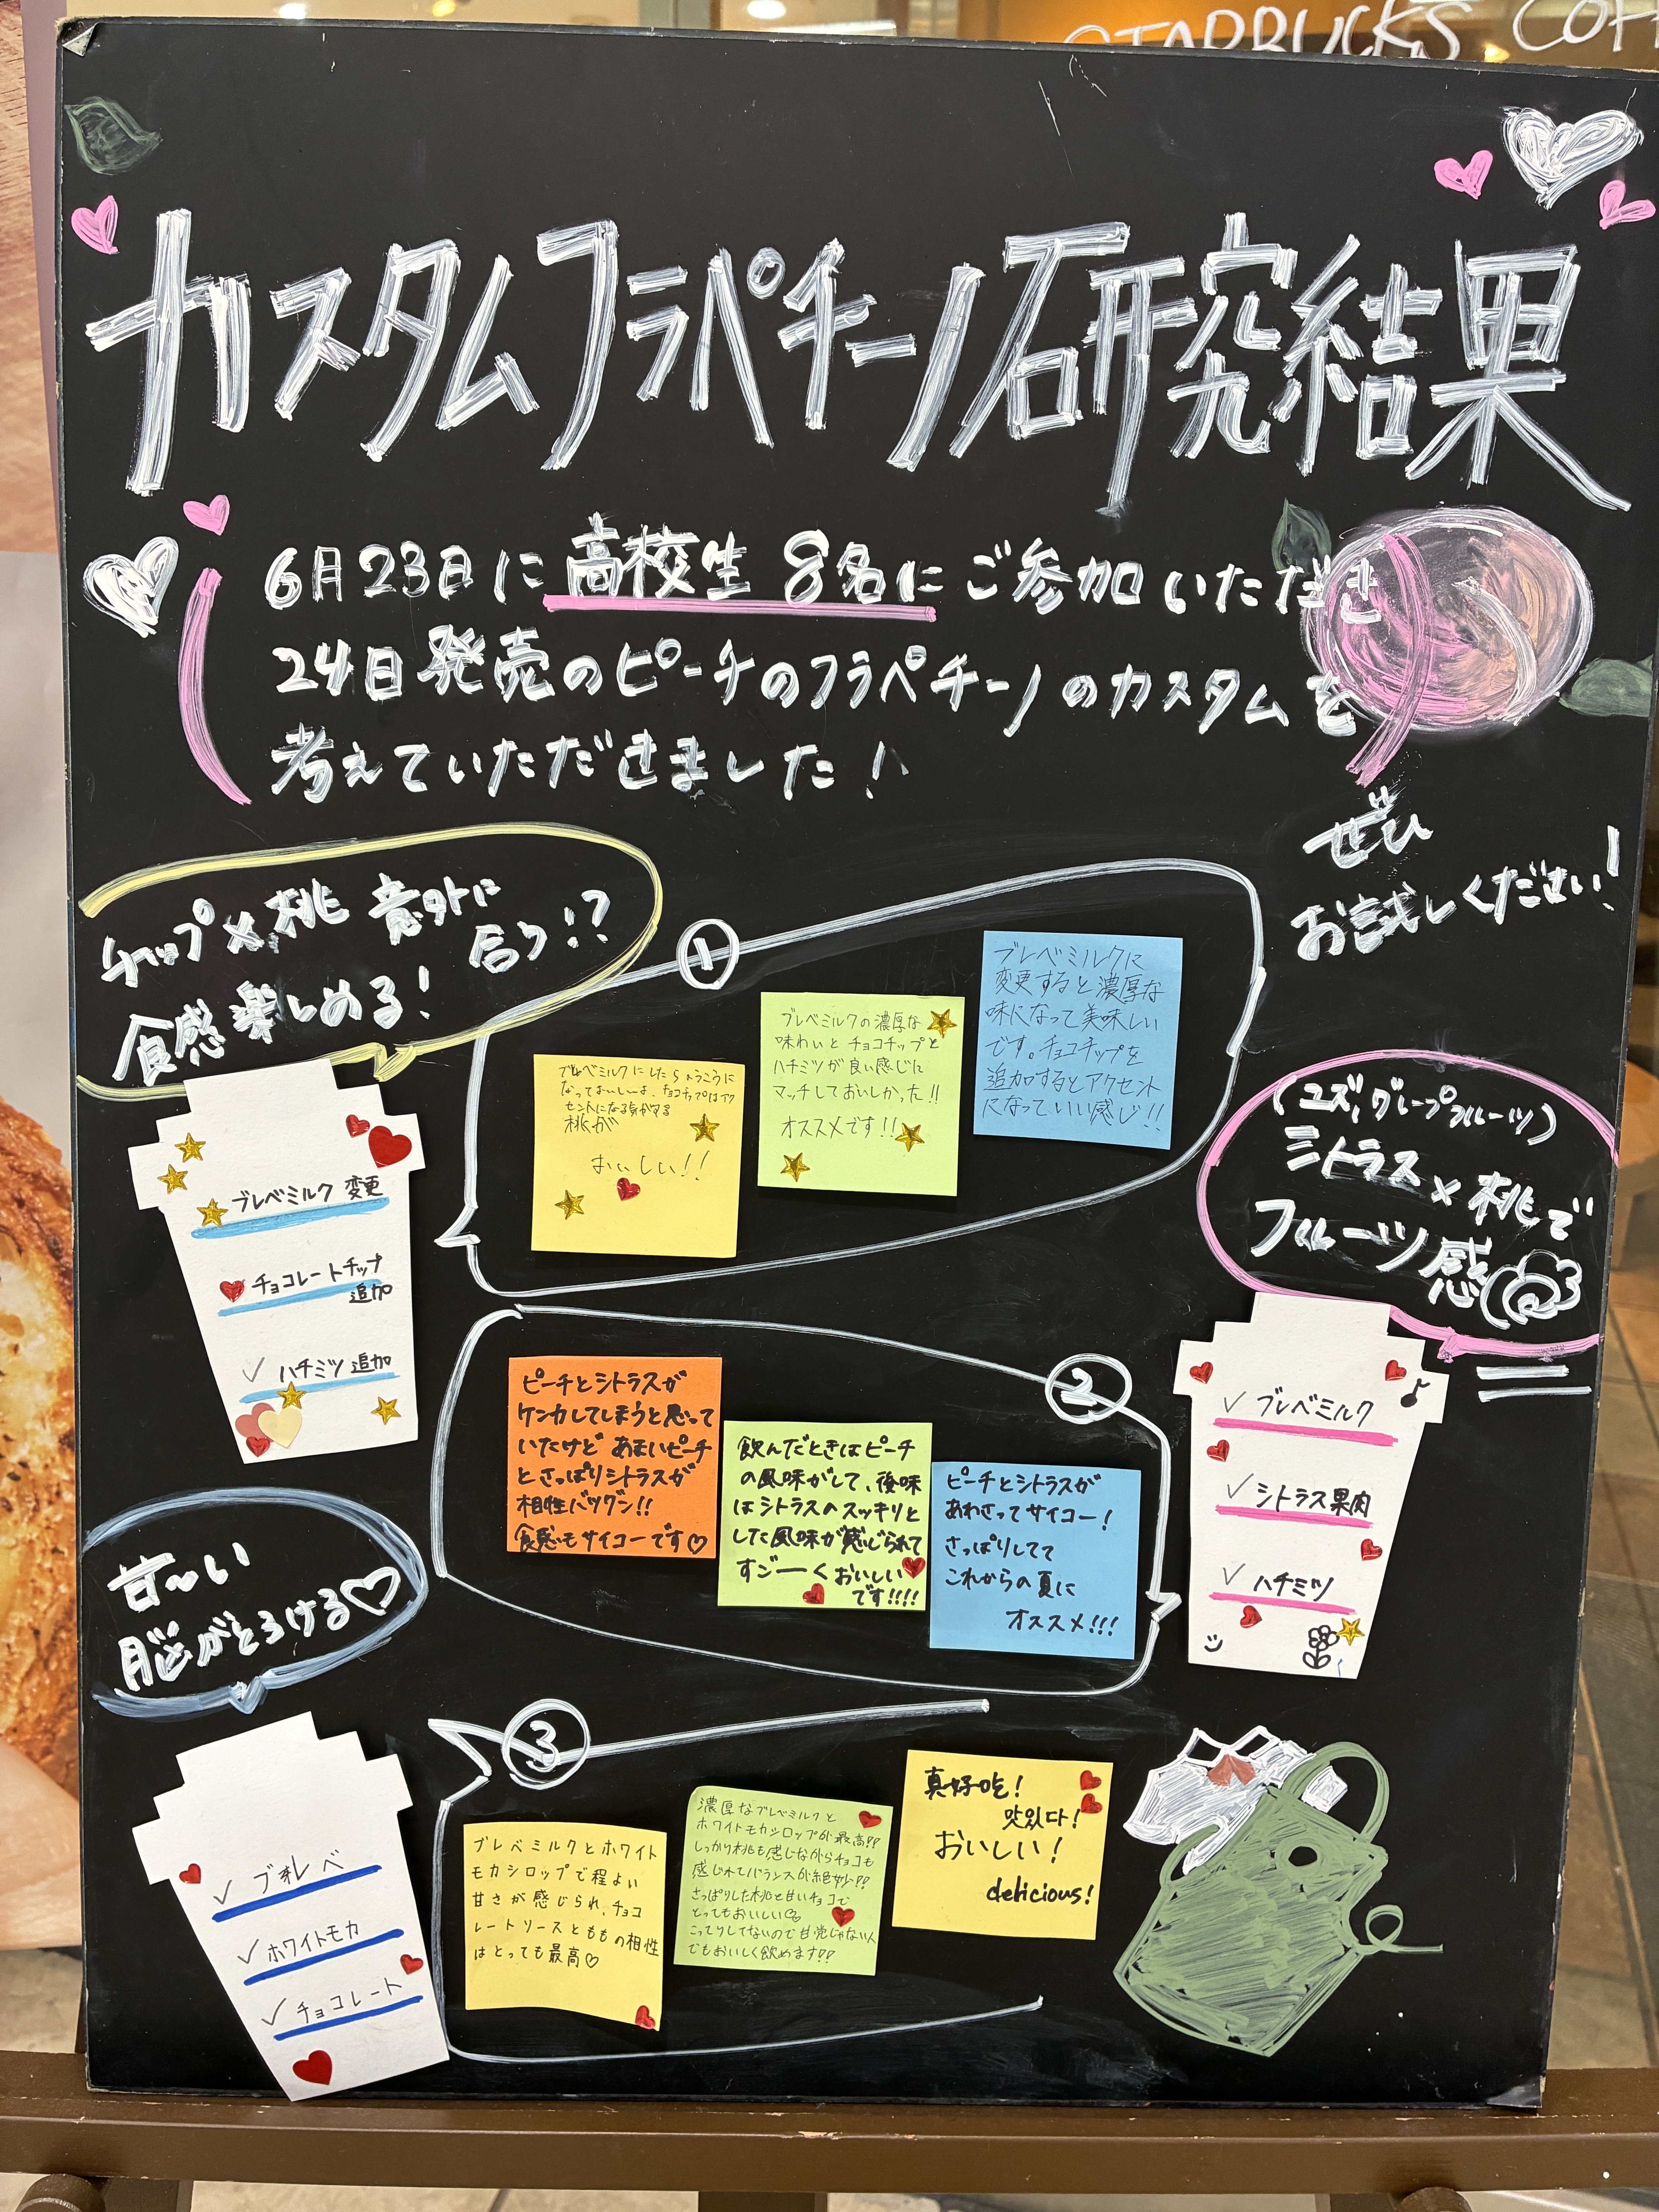 STARBUCKS COF
カスタムフラペチーノ研究結果
6月23日に高校生8名にご参加いただき
24日発売のピーチのフラペチーノのカスタムを
考えていただきました!
ぜひ
お試しください!
チップ×桃 意外に
合う!?
食感楽しめる!
①
ブレベミルク 変更
チョコレートチップ
追加
✓ ハチミツ 追加
ブレベミルクにしたらのうこうに
なっておいしいよ、チョコチップはアク
セントになる気がする
桃が
おいしい!!
ブレベミルクの濃厚な
味わいとチョコチップと
ハチミツが良い感じに
マッチしておいしかった!!
オススメです!!
ブレベミルクに
変更すると濃厚な
味になって美味しい
です。チョコチップを
追加するとアクセント
になっていい感じ!!
(ユズ,グレープフルーツ)
シトラス×桃で
フルーツ感
②
✓ ブレベミルク
✓ シトラス果肉
✓ ハチミツ
ピーチとシトラスが
ケンカしてしまうと思って
いたけど あまいピーチ
とさっぱりシトラスが
相性バツグン!!
食感もサイコーです♡
飲んだときはピーチ
の風味がして、後味
はシトラスのスッキリと
した風味が感じられて
すご──くおいしい
です!!!!
ピーチとシトラスが
あわさってサイコー!
さっぱりしてて
これからの夏に
オススメ!!!
甘〜い
脳がとろける♡
③
✓ ブレベ
✓ ホワイトモカ
✓ チョコレート
ブレベミルクとホワイト
モカシロップで程よい
甘さが感じられ、チョコ
レートソースとももの相性
はとっても最高♡
濃厚なブレベミルクと
ホワイトモカシロップが最高!!
しっかり桃も感じながらチョコも
感じれてバランスが絶妙!!
さっぱりした桃と甘いチョコで
とってもおいしい♡
こってりしてないので甘党じゃない人
でもおいしく飲めます!!
真好吃!
맛있다!
おいしい!
delicious!